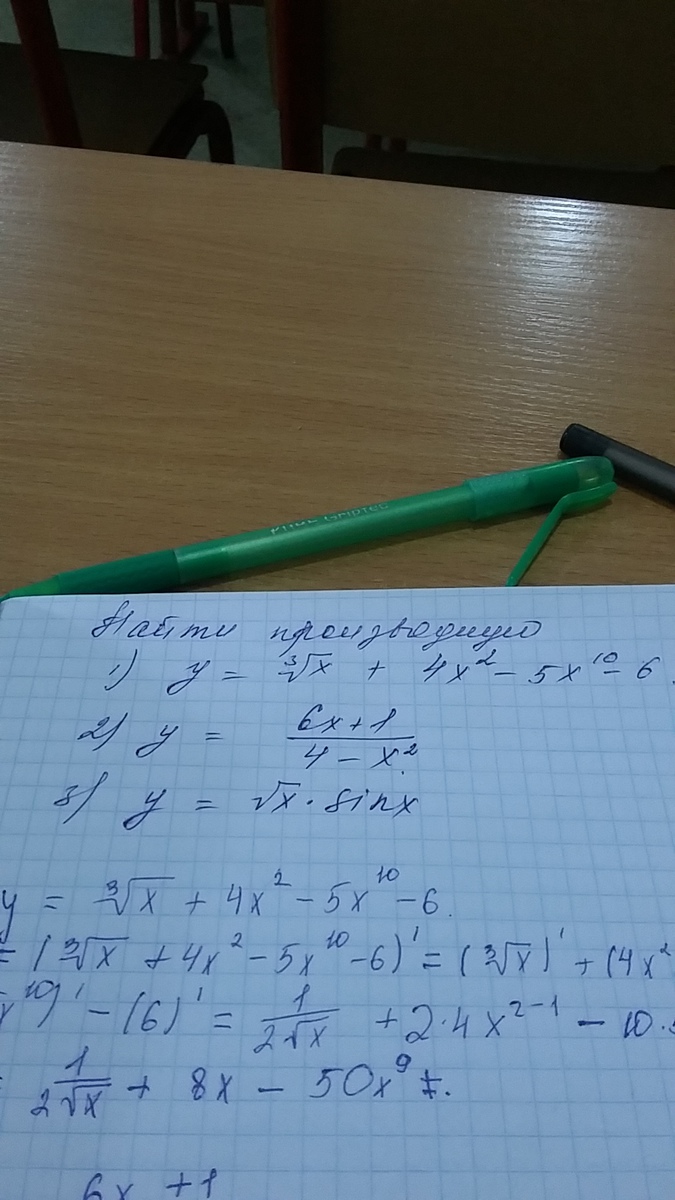 Найти производную
1) y = ∛x + 4x² - 5x¹⁰ - 6.
2) y = (6x+1)/(4-x²)
3) y = √x · sinx
y = ∛x + 4x² - 5x¹⁰ - 6.
= (∛x + 4x² - 5x¹⁰ - 6)' = (∛x)' + (4x²
x¹⁰)' - (6)' = 1/(2√x) + 2·4x²⁻¹ - 10·
1/(2√x) + 8x - 50x⁹
6x + 1